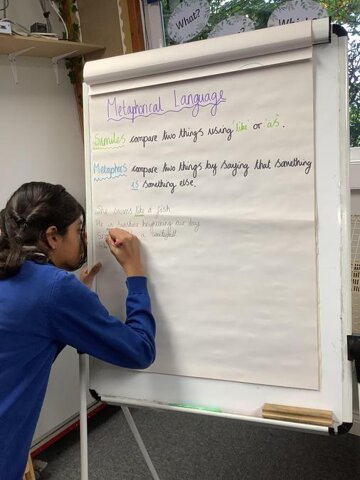 What?
When?
Which
Metaphorical Language
Similes compare two things using 'like' or 'as'.
Metaphors compare two things by saying that something
is something else.
She swims like a fish
He is sunshine brightening our day
a